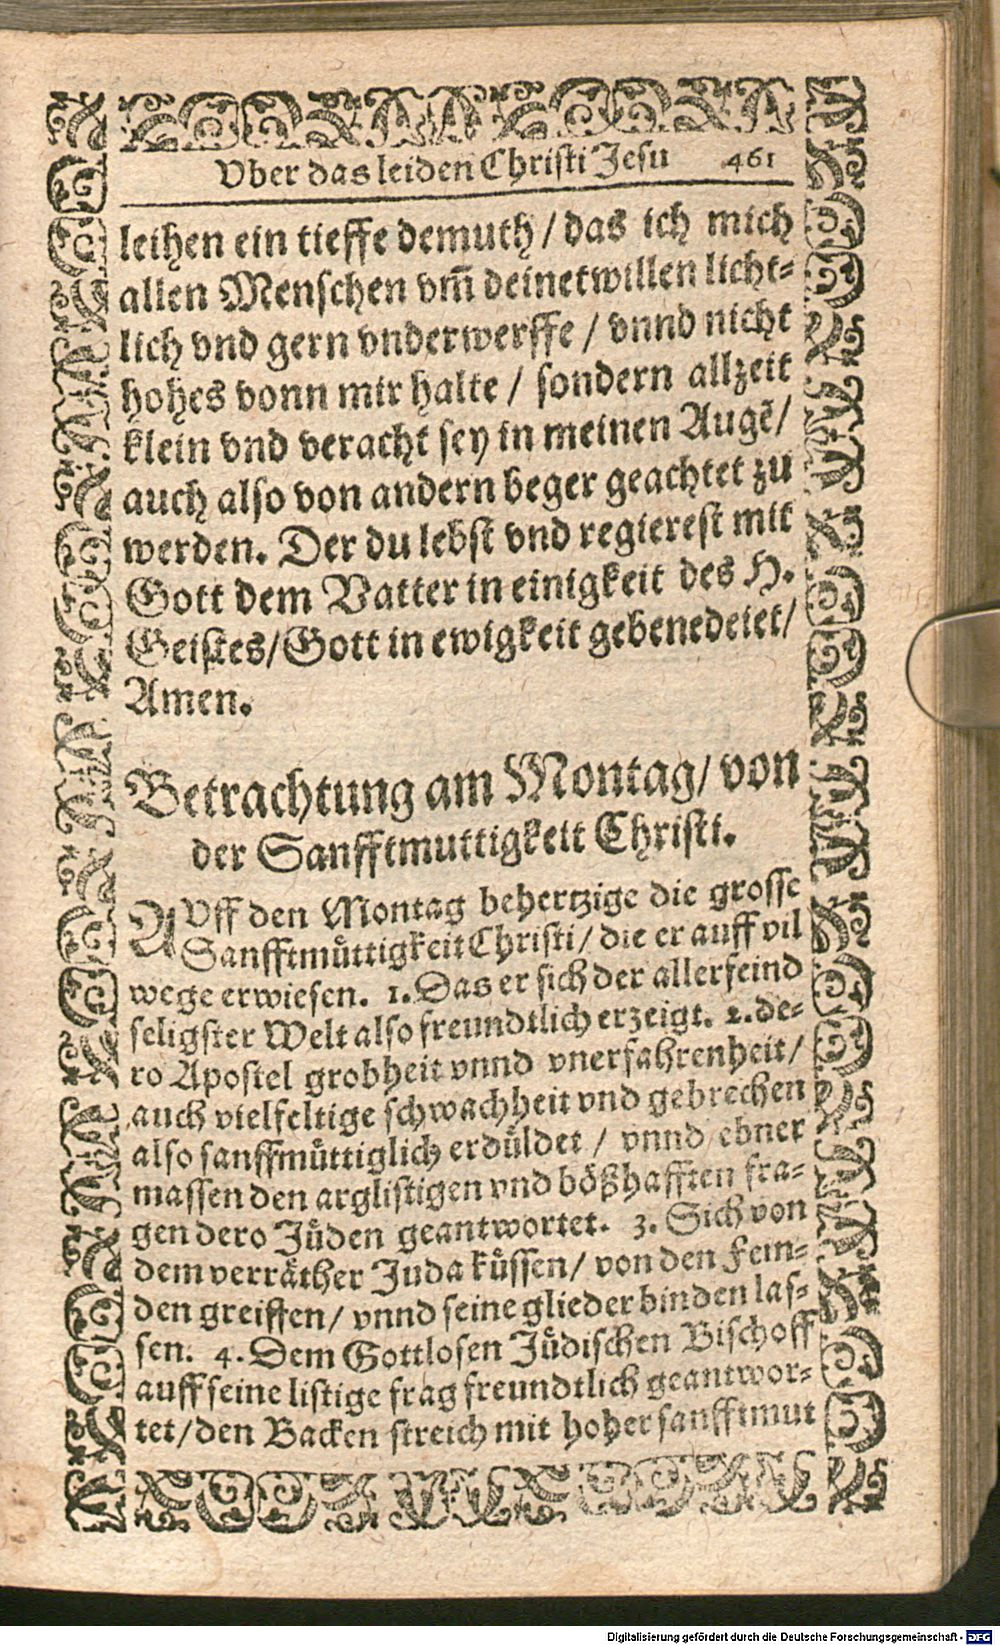 Vber das leiden Christi Jesu 461
leihen ein tieffe demuth / das ich mich
allen Menschen vm̃ deinetwillen licht⸗
lich vnd gern vnderwerffe / vnnd nicht
hohes vonn mir halte / sondern allzeit
klein vnd veracht sey in meinen Augẽ/
auch also von andern beger geachtet zu
werden. Der du lebst vnd regierest mit
Gott dem Vatter in einigkeit des H.
Geistes/Gott in ewigkeit gebenedeiet/
Amen.
Betrachtung am Montag/ von
der Sanfftmuttigkeit Christi.
AVff den Montag behertzige die grosse
Sanfftmuͤttigkeit Christi/ die er auff vil
wege erwiesen. 1. Das er sich der allerfeind
seligster Welt also freundtlich erzeigt. 2. de⸗
ro Apostel grobheit vnnd vnerfahrenheit/
auch vielfeltige schwachheit vnd gebrechen
also sanffmuͤttiglich erduͤldet / vnnd ebner
massen den arglistigen vnd boͤßhafften fra⸗
gen dero Juͤden geantwortet. 3. Sich von
dem verraͤther Juda kuͤssen/ von den Fein⸗
den greiffen/ vnnd seine glieder binden las⸗
sen. 4. Dem Gottlosen Juͤdischen Bischoff
auff seine listige frag freundtlich geantwor⸗
tet/den Backen streich mit hoher sanfftmut
Digitalisierung gefördert durch die Deutsche Forschungsgemeinschaft - DFG